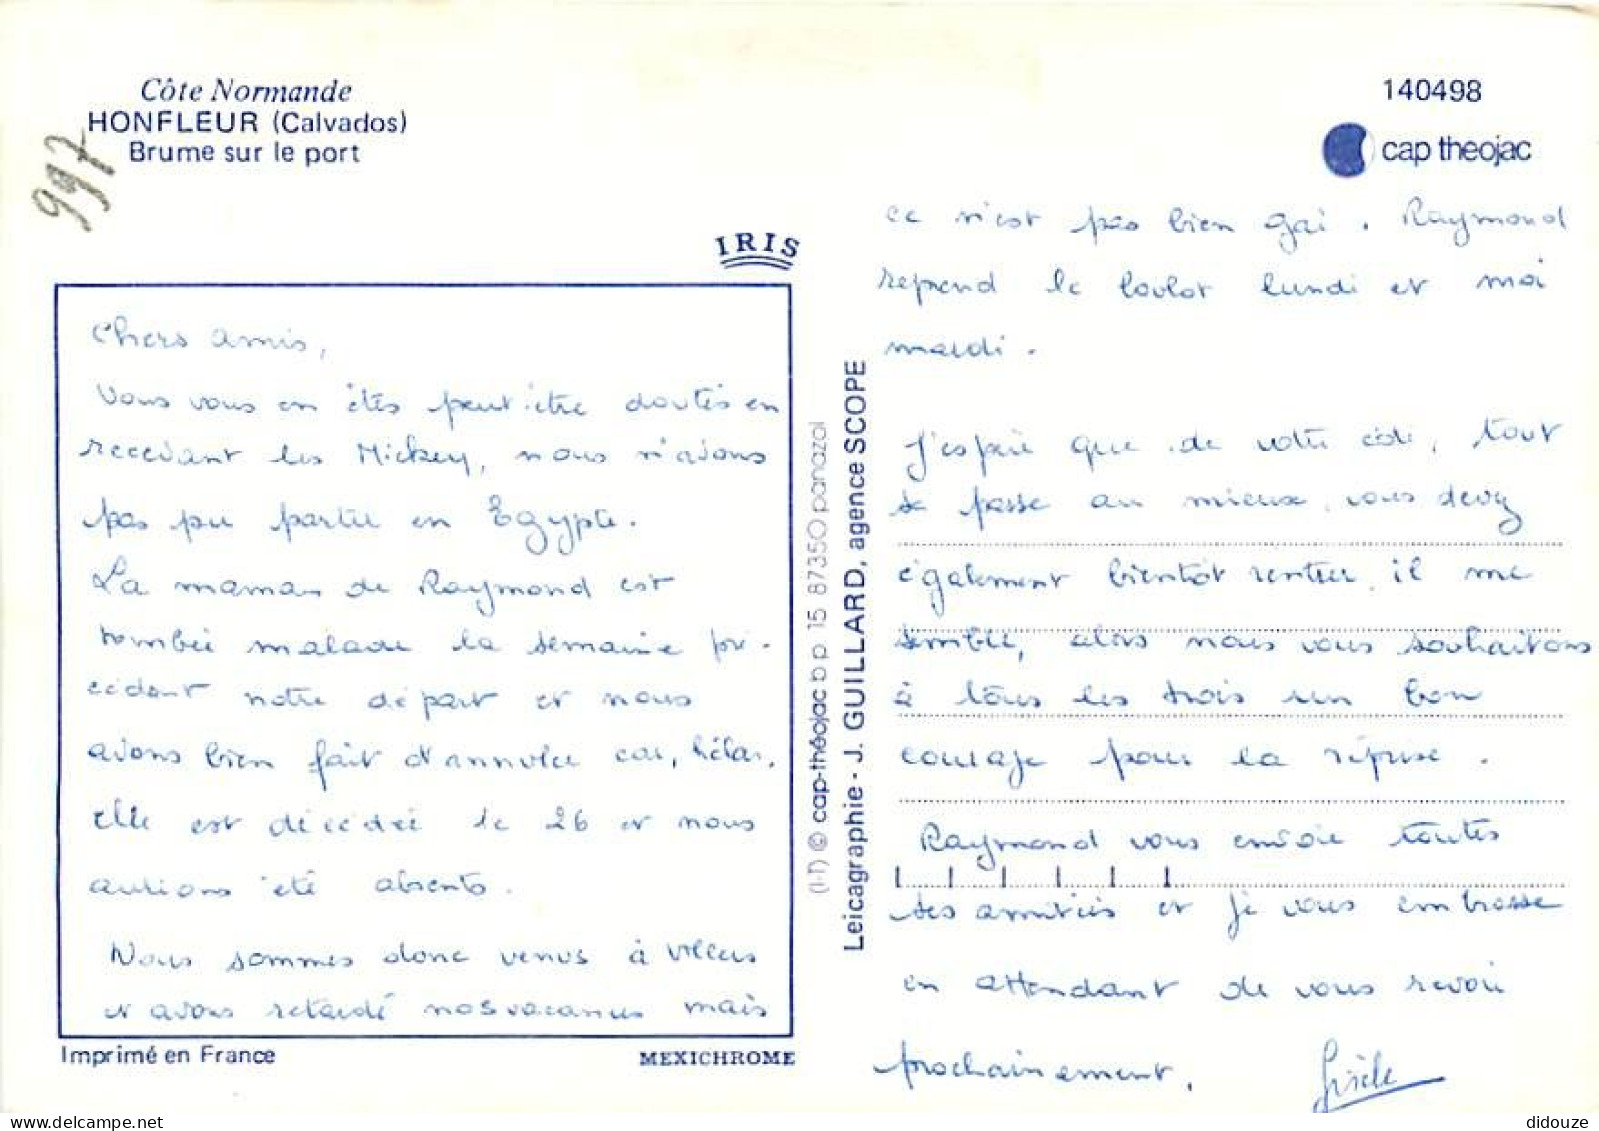 Côte Normande
HONFLEUR (Calvados)
Brume sur le port
997
IRIS
Chers amis,
Vous vous en êtes peut-être doutés en
recevant les Mickey, nous n'avons
pas pu partir en Egypte.
La maman de Raymond est
tombée malade la semaine pré-
cédant notre départ et nous
avons bien fait d'annuler car, hélas,
elle est décédée le 26 et nous
aurions été absents.
Nous sommes donc venus à Villers
et avons retardé nos vacances mais
Imprimé en France
MEXICHROME
(I-T) © cap-théojac b p 15 87350 panazol
Leicagraphie - J. GUILLARD, agence SCOPE
140498
cap theojac
ce n'est pas bien gai. Raymond
reprend le boulot lundi et moi
mardi.
J'espère que de votre côté, tout
se passe au mieux, vous devez
également bientôt rentrer, il me
semble, alors nous vous souhaitons
à tous les trois un bon
courage pour la reprise.
Raymond vous envoie toutes
ses amitiés et je vous embrasse
en attendant de vous revoir
prochainement.
Gisèle
didouze